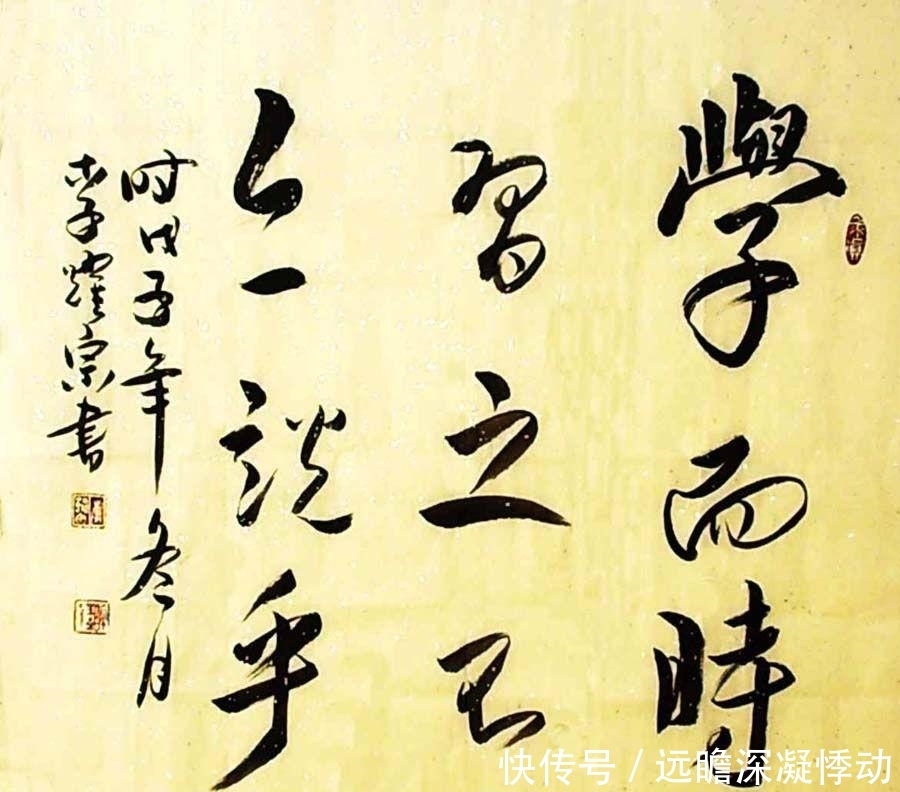 學而時
習之不
亦説乎
时戊子年冬月
李燿宗書
快传号 / 远瞻深凝悸动